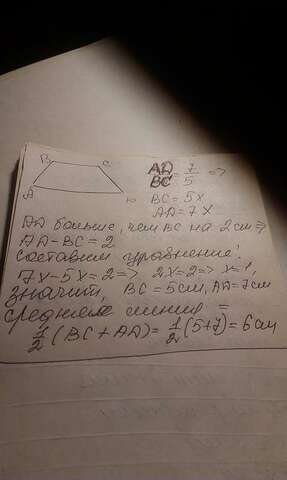 B C
A D
AD/BC = 7/5 =>
BC = 5x
AD = 7x
AD больше, чем BC на 2см =>
AD - BC = 2
составим уравнение:
7x - 5x = 2 => 2x = 2 => x = 1,
значит, BC = 5см, AD = 7см
средняя линия =
1/2 (BC + AD) = 1/2 (5+7) = 6см